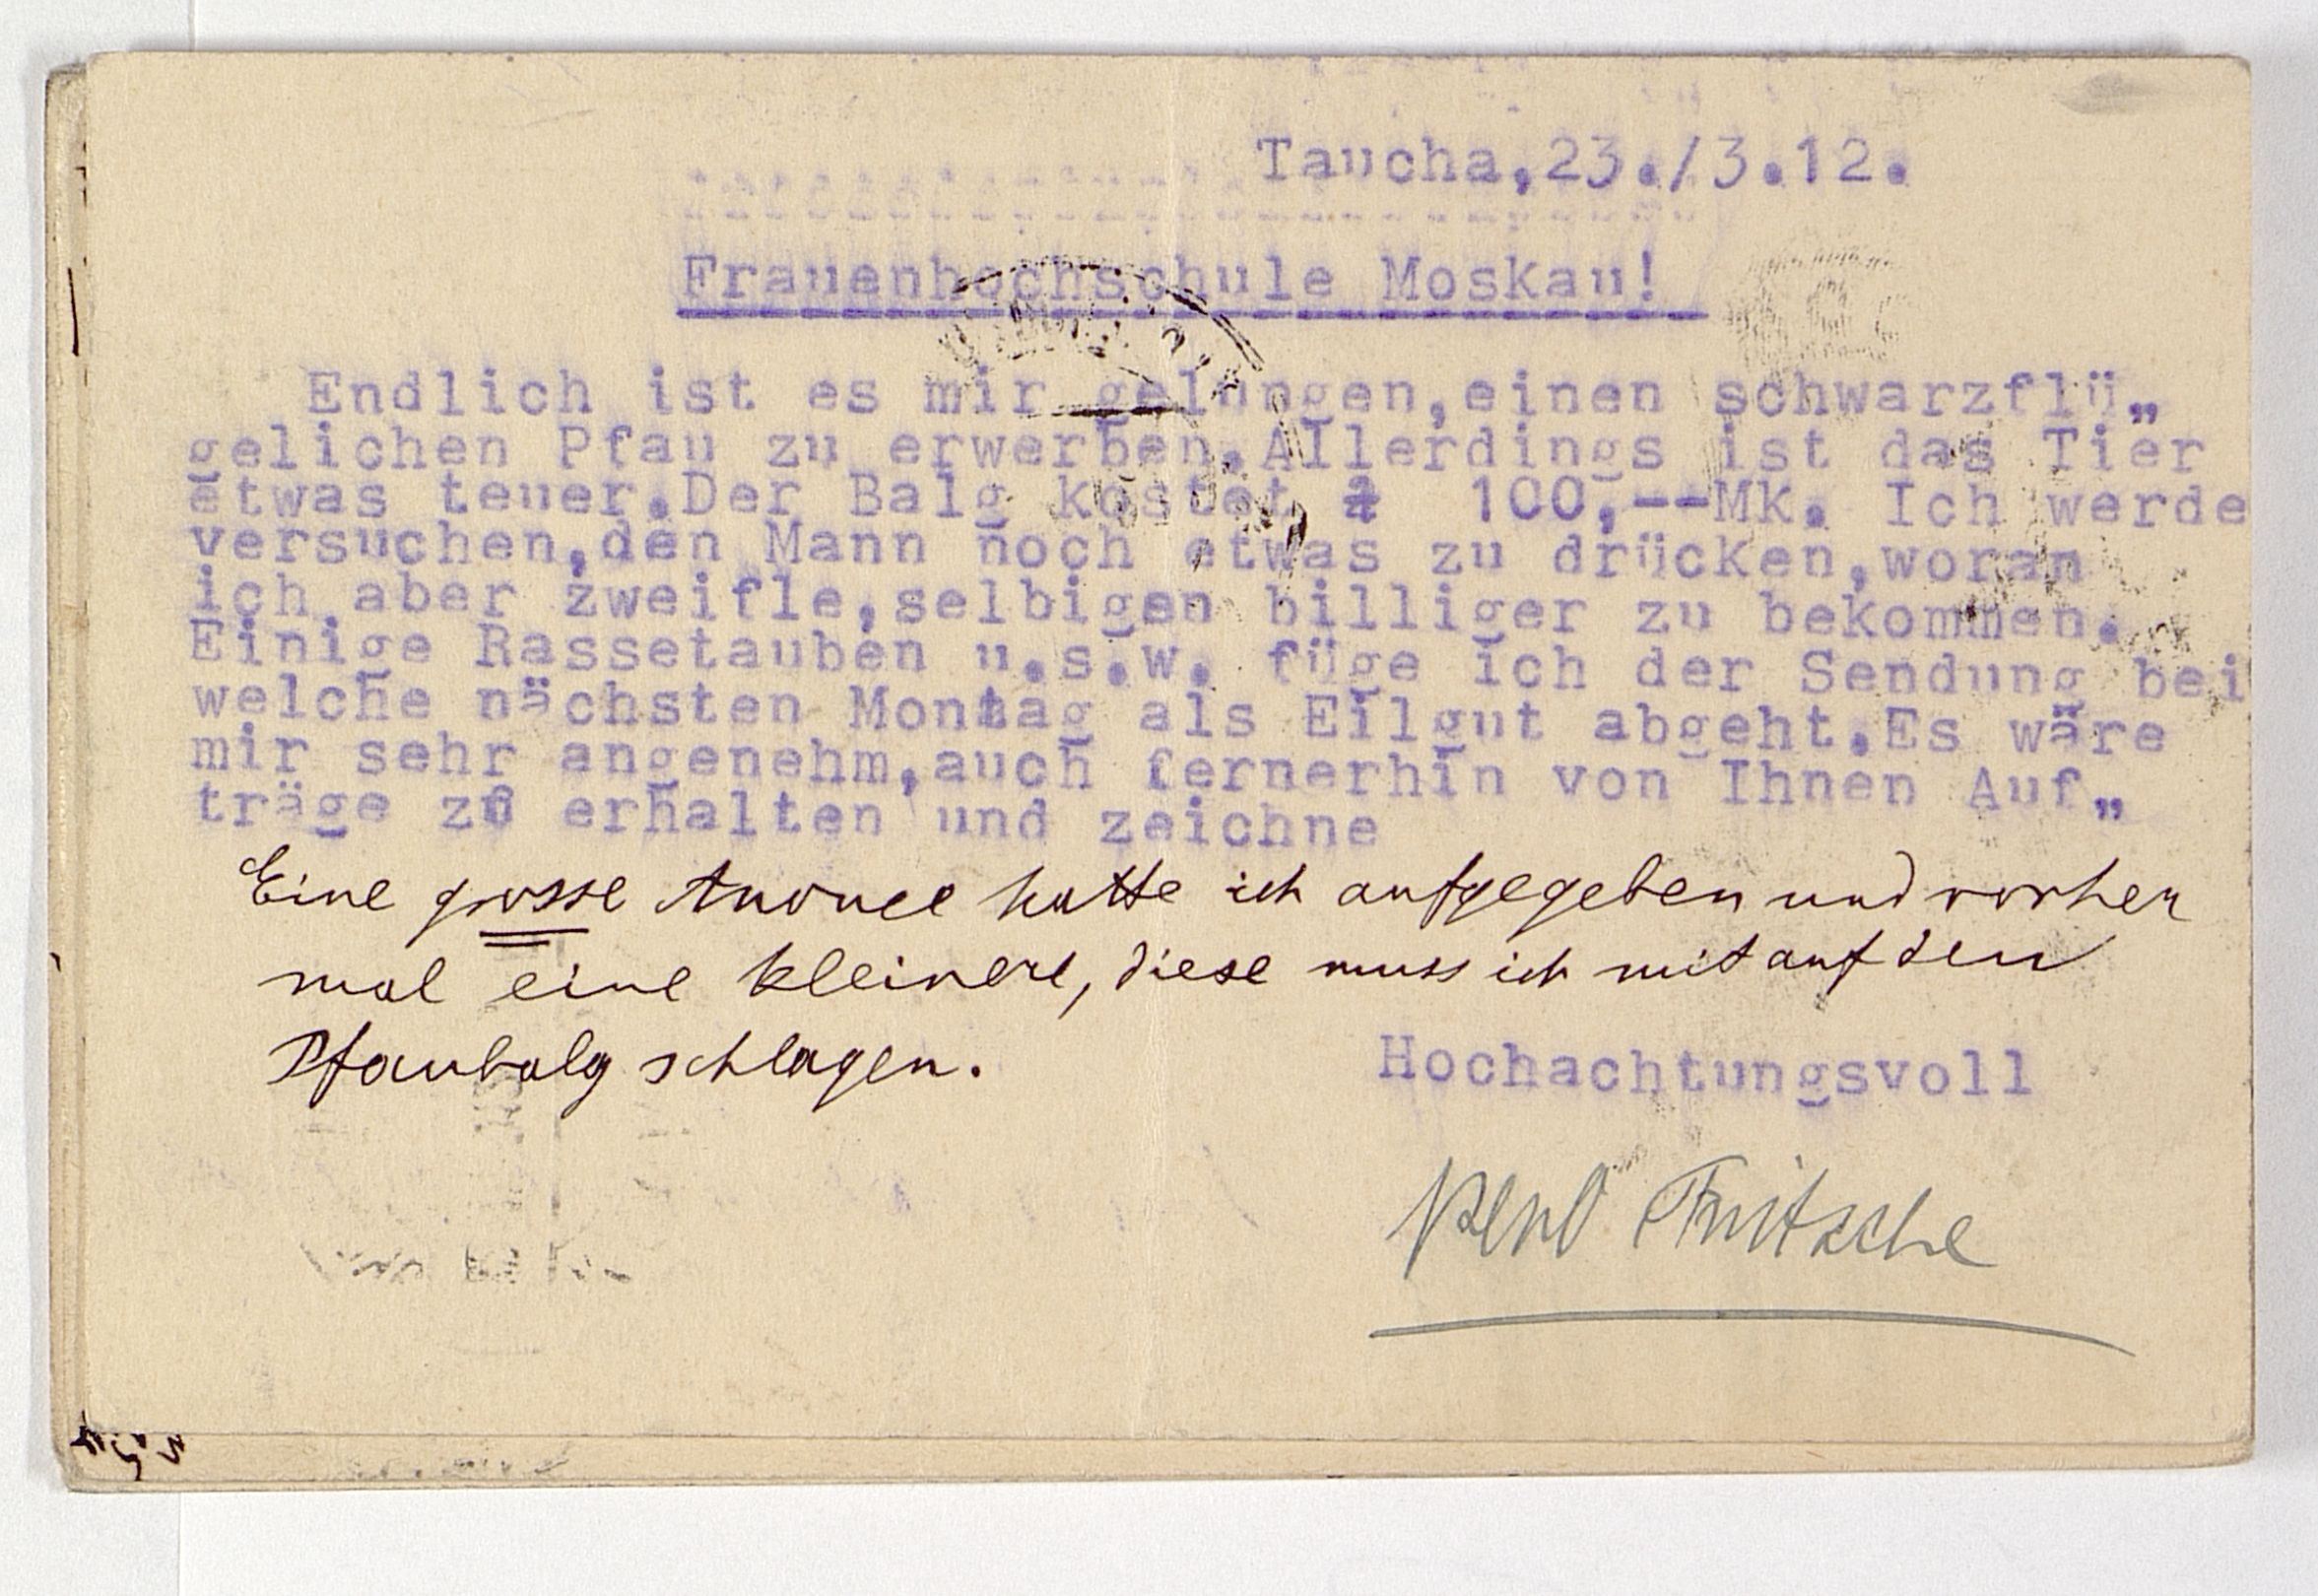 Taucha,23./3.12.
Frauenhochschule Moskau!
Endlich ist es mir gelungen,einen schwarzflü„
gelichen Pfau zu erwerben.Allerdings ist das Tier
etwas teuer.Der Balg kostet 100,--Mk. Ich werde
versuchen,den Mann noch etwas zu drücken,woran
ich aber zweifle,selbigen billiger zu bekommen.
Einige Rassetauben u.s.w. füge ich der Sendung bei
welche nächsten Montag als Eilgut abgeht.Es wäre
mir sehr angenehm,auch fernerhin von Ihnen Auf„
träge zu erhalten und zeichne
Eine grosse Anonce hatte ich aufgegeben und vorher
mal eine kleinere, diese muss ich mit auf den
Pfaubalg schlagen.
Hochachtungsvoll
Fritzsche